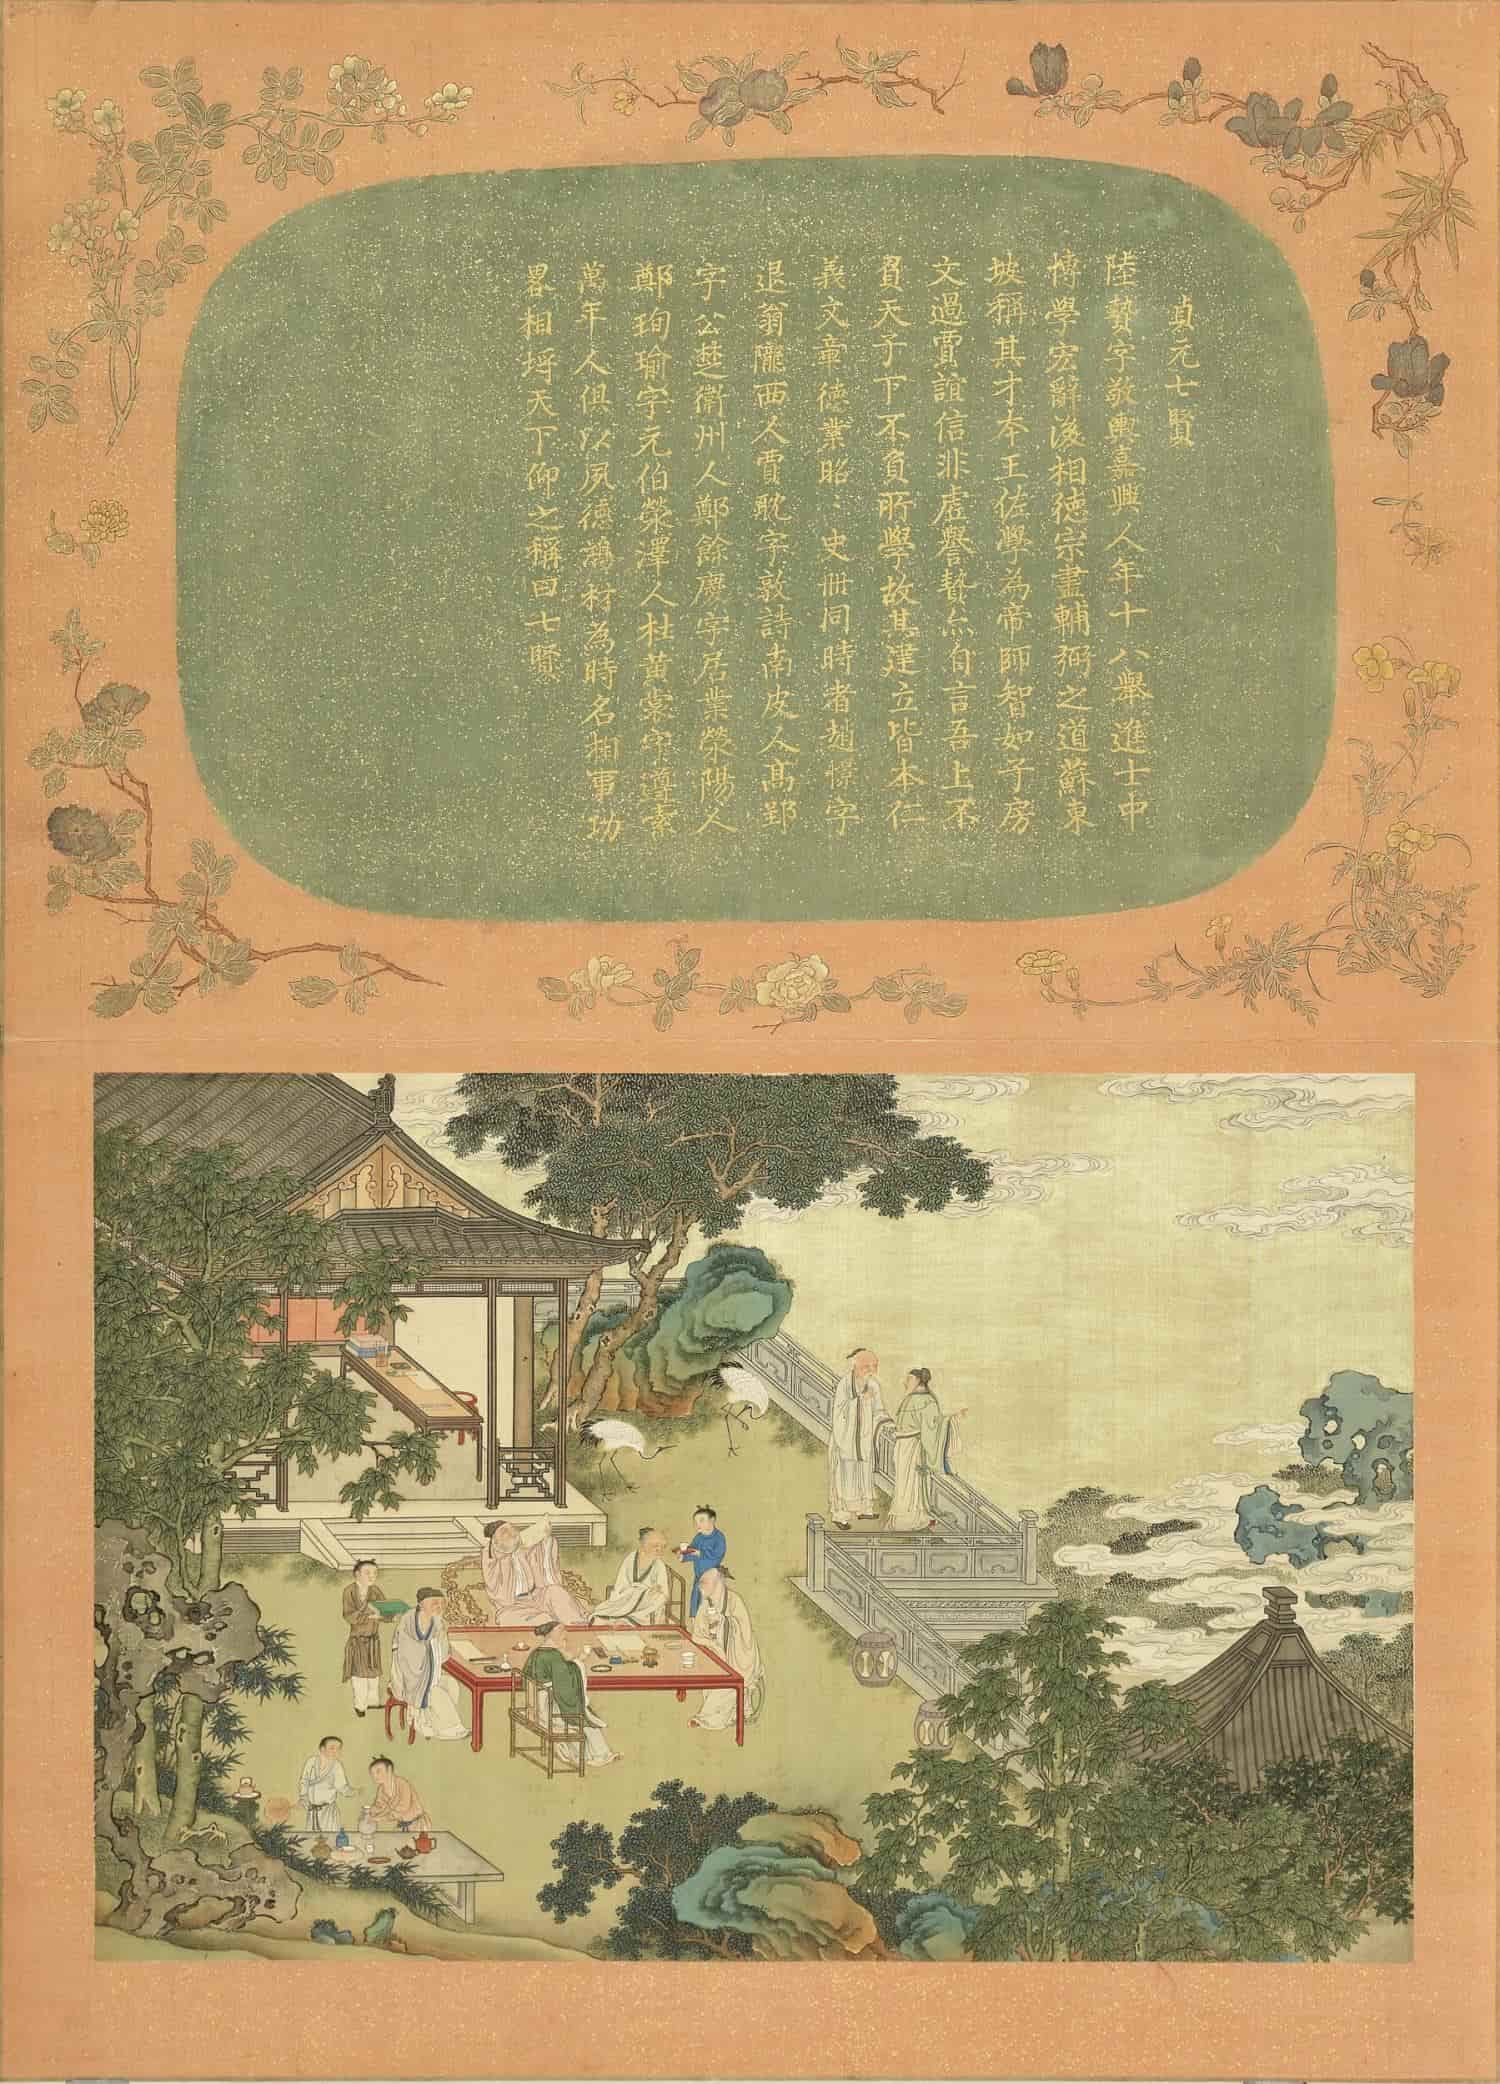 貞元七賢
陸贄字敬輿嘉興人年十八舉進士中
博學宏辭後相德宗盡輔弼之道蘇東
坡稱其才本王佐學為帝師智如子房
文過賈誼信非虛譽贄亦自言吾上不
負天子下不負所學故其建立皆本仁
義文章德業昭：史冊同時者趙憬字
退翁隴西人賈耽字敦詩南皮人高郢
字公楚衛州人鄭餘慶字居業滎陽人
鄭珣瑜字元伯滎澤人杜黃裳字遵素
萬年人俱以夙德鴻材為時名相事功
畧相埒天下仰之稱曰七賢